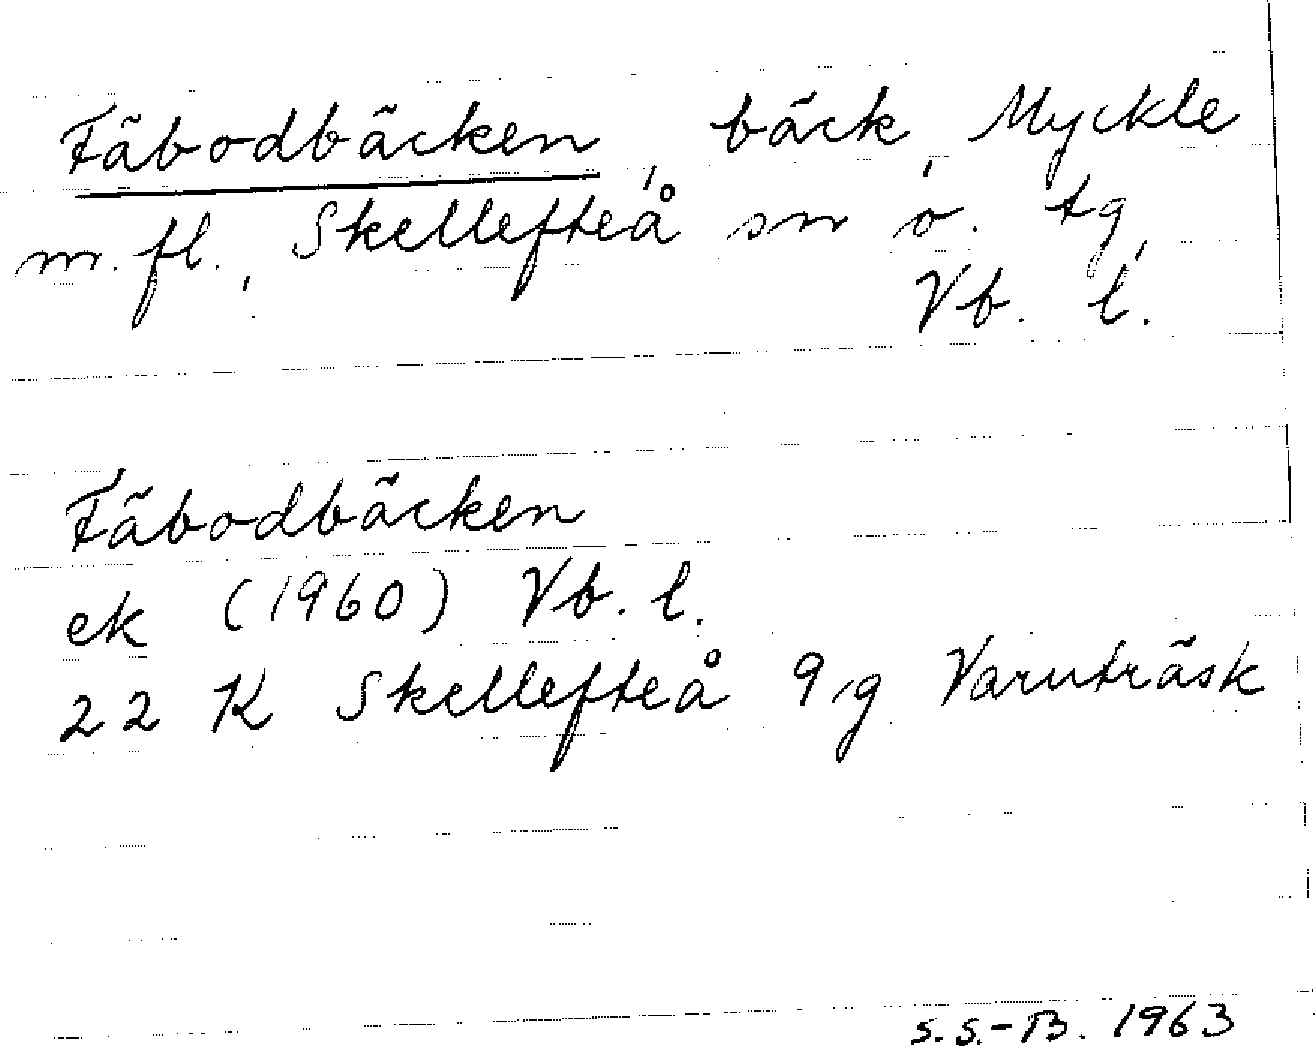 Fäbodbäcken, bäck, Myckle
m. fl., Skellefteå sn o. tg,
Vb. l.
Fäbodbäcken
ek (1960) Vb. l.
22 K Skellefteå 9 g Varuträsk
S. S.-B. 1963